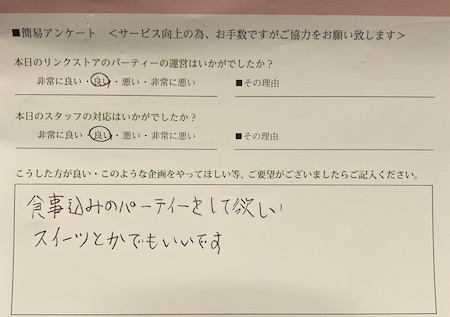 ■簡易アンケート ＜サービス向上の為、お手数ですがご協力をお願い致します＞
本日のリンクストアのパーティーの運営はいかがでしたか？
非常に良い・良い・悪い・非常に悪い ■その理由
本日のスタッフの対応はいかがでしたか？
非常に良い・良い・悪い・非常に悪い ■その理由
こうした方が良い・このような企画をやってほしい等、ご要望がございましたらご記入ください。
食事込みのパーティーをして欲しい
スイーツとかでもいいです